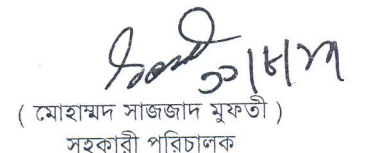 ( মোহাম্মদ সাজজাদ মুফতী )
সহকারী পরিচালক